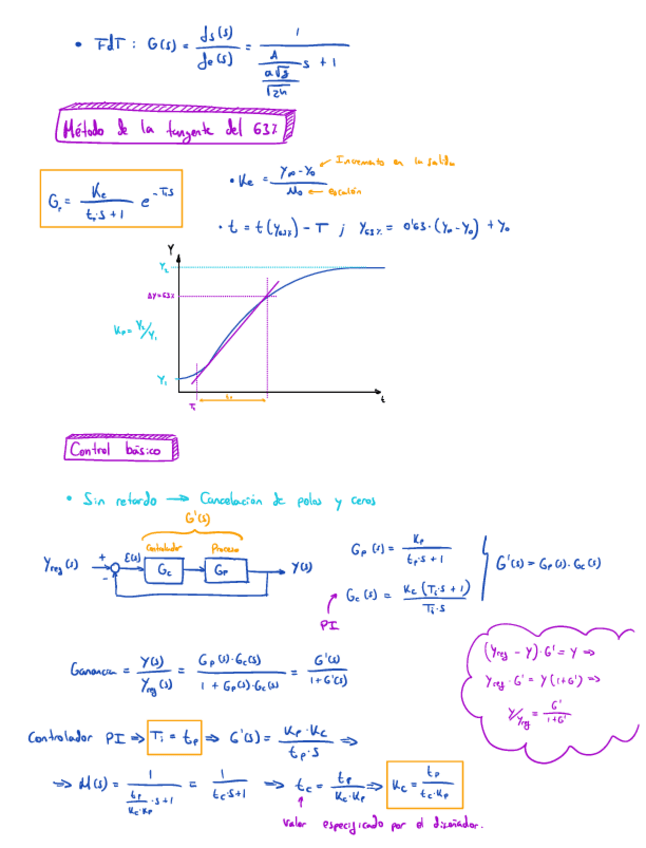 • FdT : G(s) = ds(s) / de(s) = 1 / (A / (a√g / √2h) s + 1)
Método de la tangente del 63%
Gp = Ke / (t₁·s + 1) e^(-T₁s)
• Ke = (Y∞ - Y₀) / M₀
Incremento en la salida
escalón
• t = t(Y63%) - T ; Y63% = 0'63·(Y∞ - Y₀) + Y₀
Y
Y₂
ΔY=63%
Kp = Y₂/Y₁
Y₁
T₁
t
Control básico
• Sin retardo → Cancelación de polos y ceros
G'(s)
Controlador Proceso
Yref(s) + - E(s) Gc Gp Y(s)
Gp(s) = Kp / (tp·s + 1)
Gc(s) = Kc (Ti·s + 1) / (Ti·s)
G'(s) = Gp(s)·Gc(s)
PI
Ganancia = Y(s) / Yref(s) = Gp(s)·Gc(s) / (1 + Gp(s)·Gc(s)) = G'(s) / (1+G'(s))
(Yref - Y)·G' = Y ⇒
Yref·G' = Y(1+G') ⇒
Y/Yref = G' / (1+G')
Controlador PI ⇒ Ti = tp ⇒ G'(s) = Kp·Kc / (tp·s) ⇒
⇒ M(s) = 1 / (tp / (Kc·Kp) ·s+1) = 1 / (tc·s+1) ⇒ tc = tp / (Kc·Kp) ⇒ Kc = tp / (tc·Kp)
Valor especificado por el diseñador.